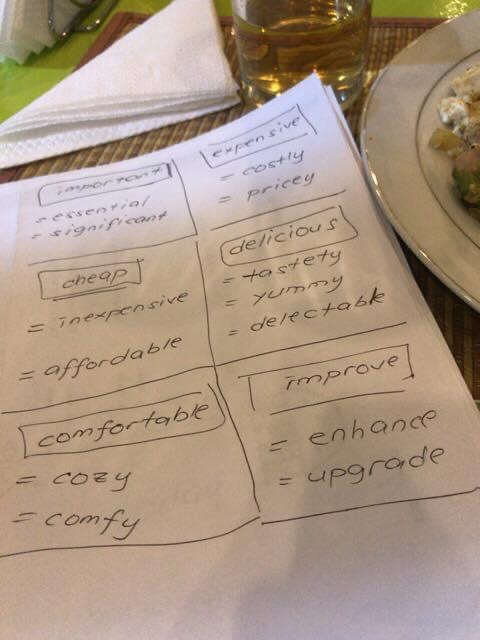 important
= essential
= significant
expensive
= costly
= pricey
cheap
= inexpensive
= affordable
delicious
= tastety
= yummy
= delectable
comfortable
= cozy
= comfy
improve
= enhance
= upgrade